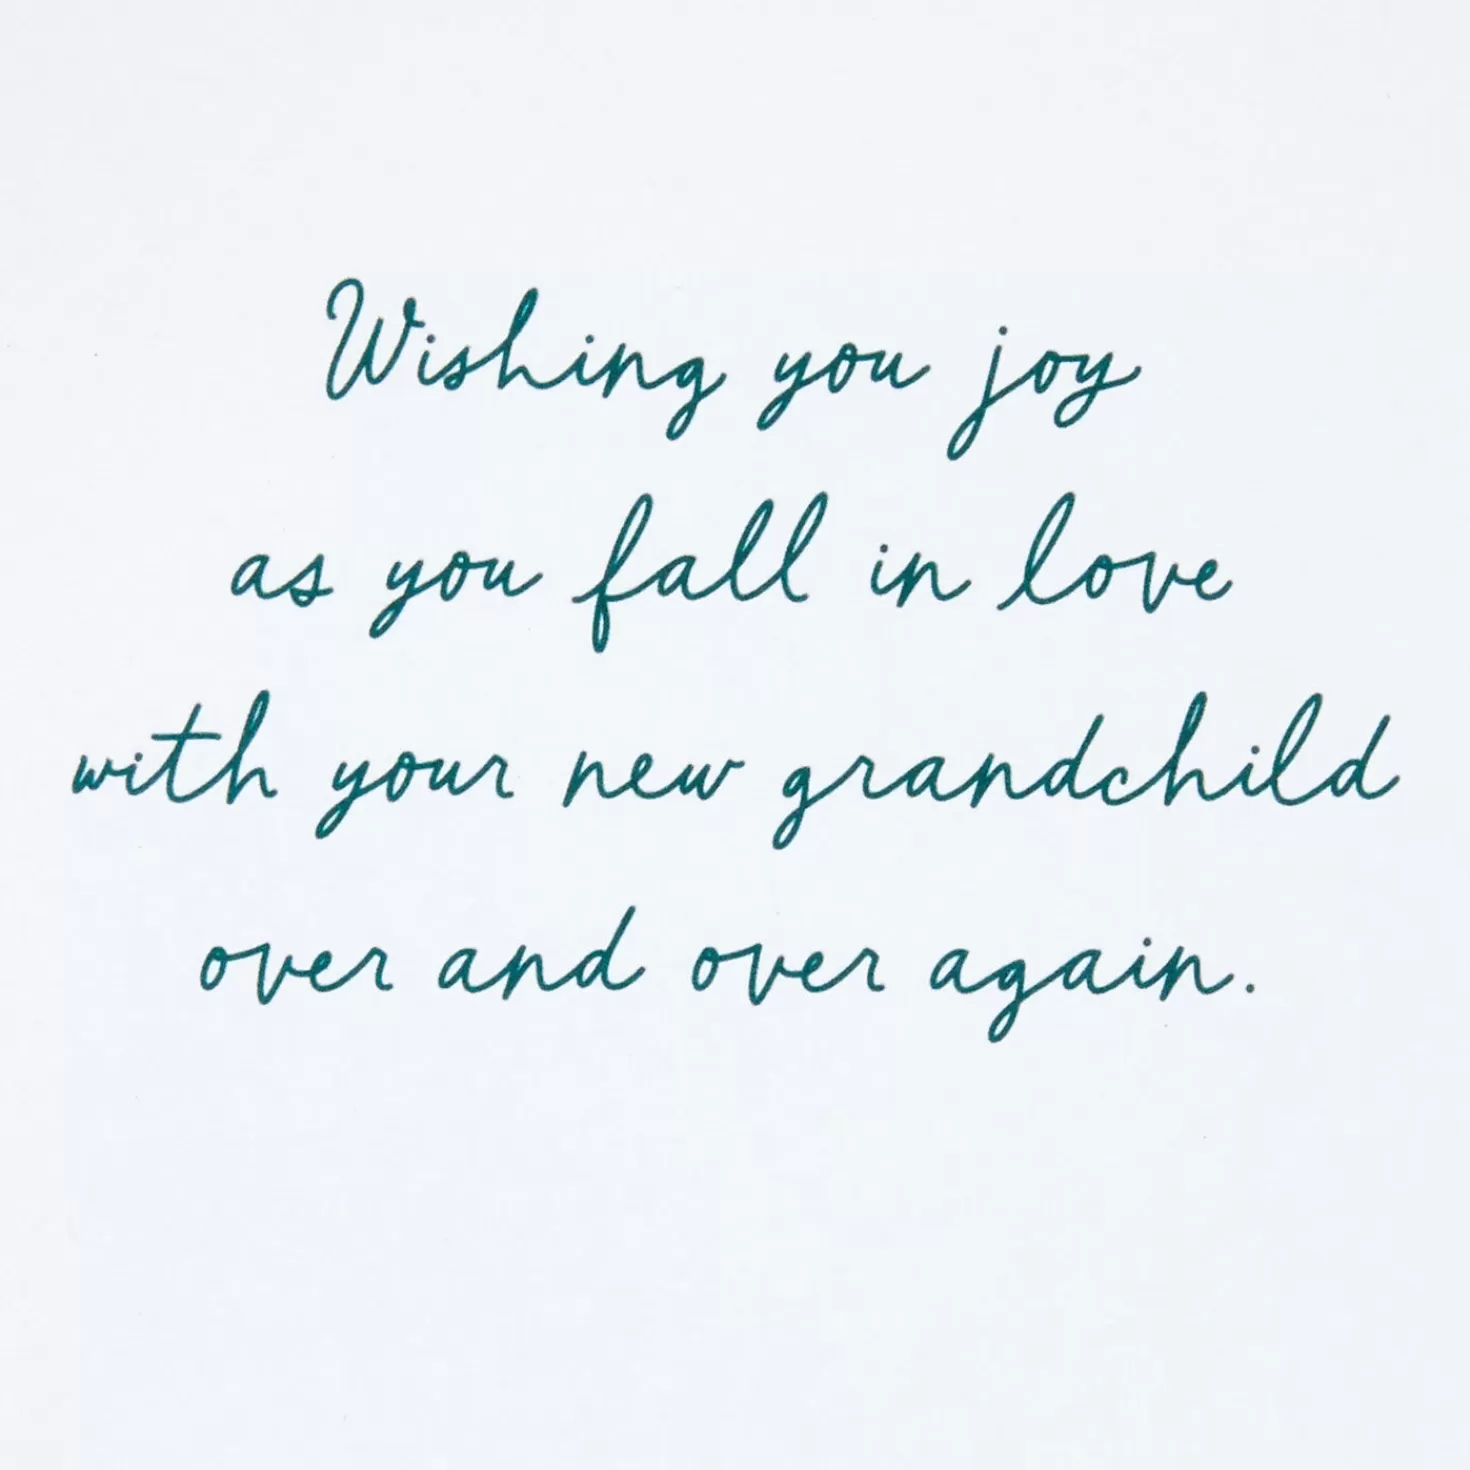 Wishing you joy
as you fall in love
with your new grandchild
over and over again.